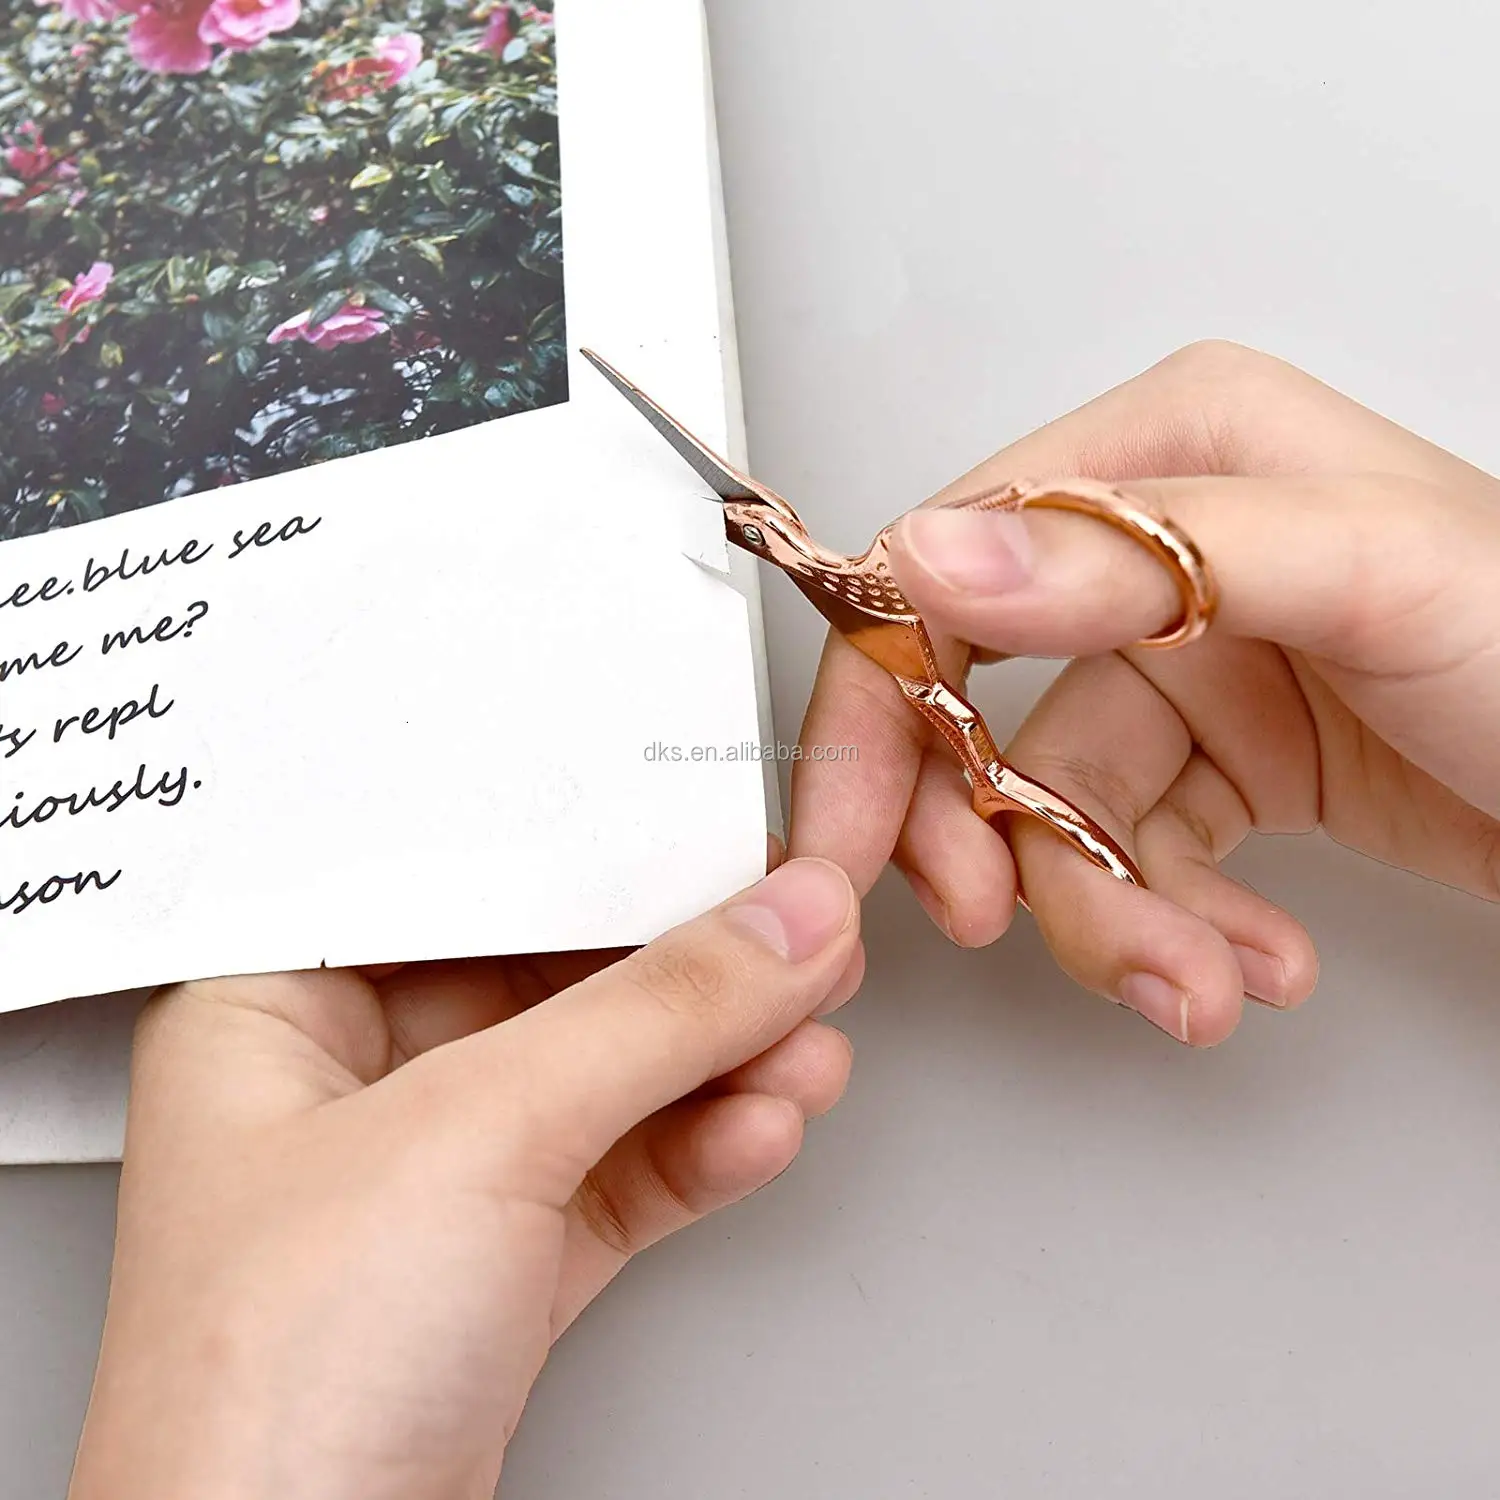 ee.blue sea
me me?
's repl
iously.
son
dks.en.alibaba.com